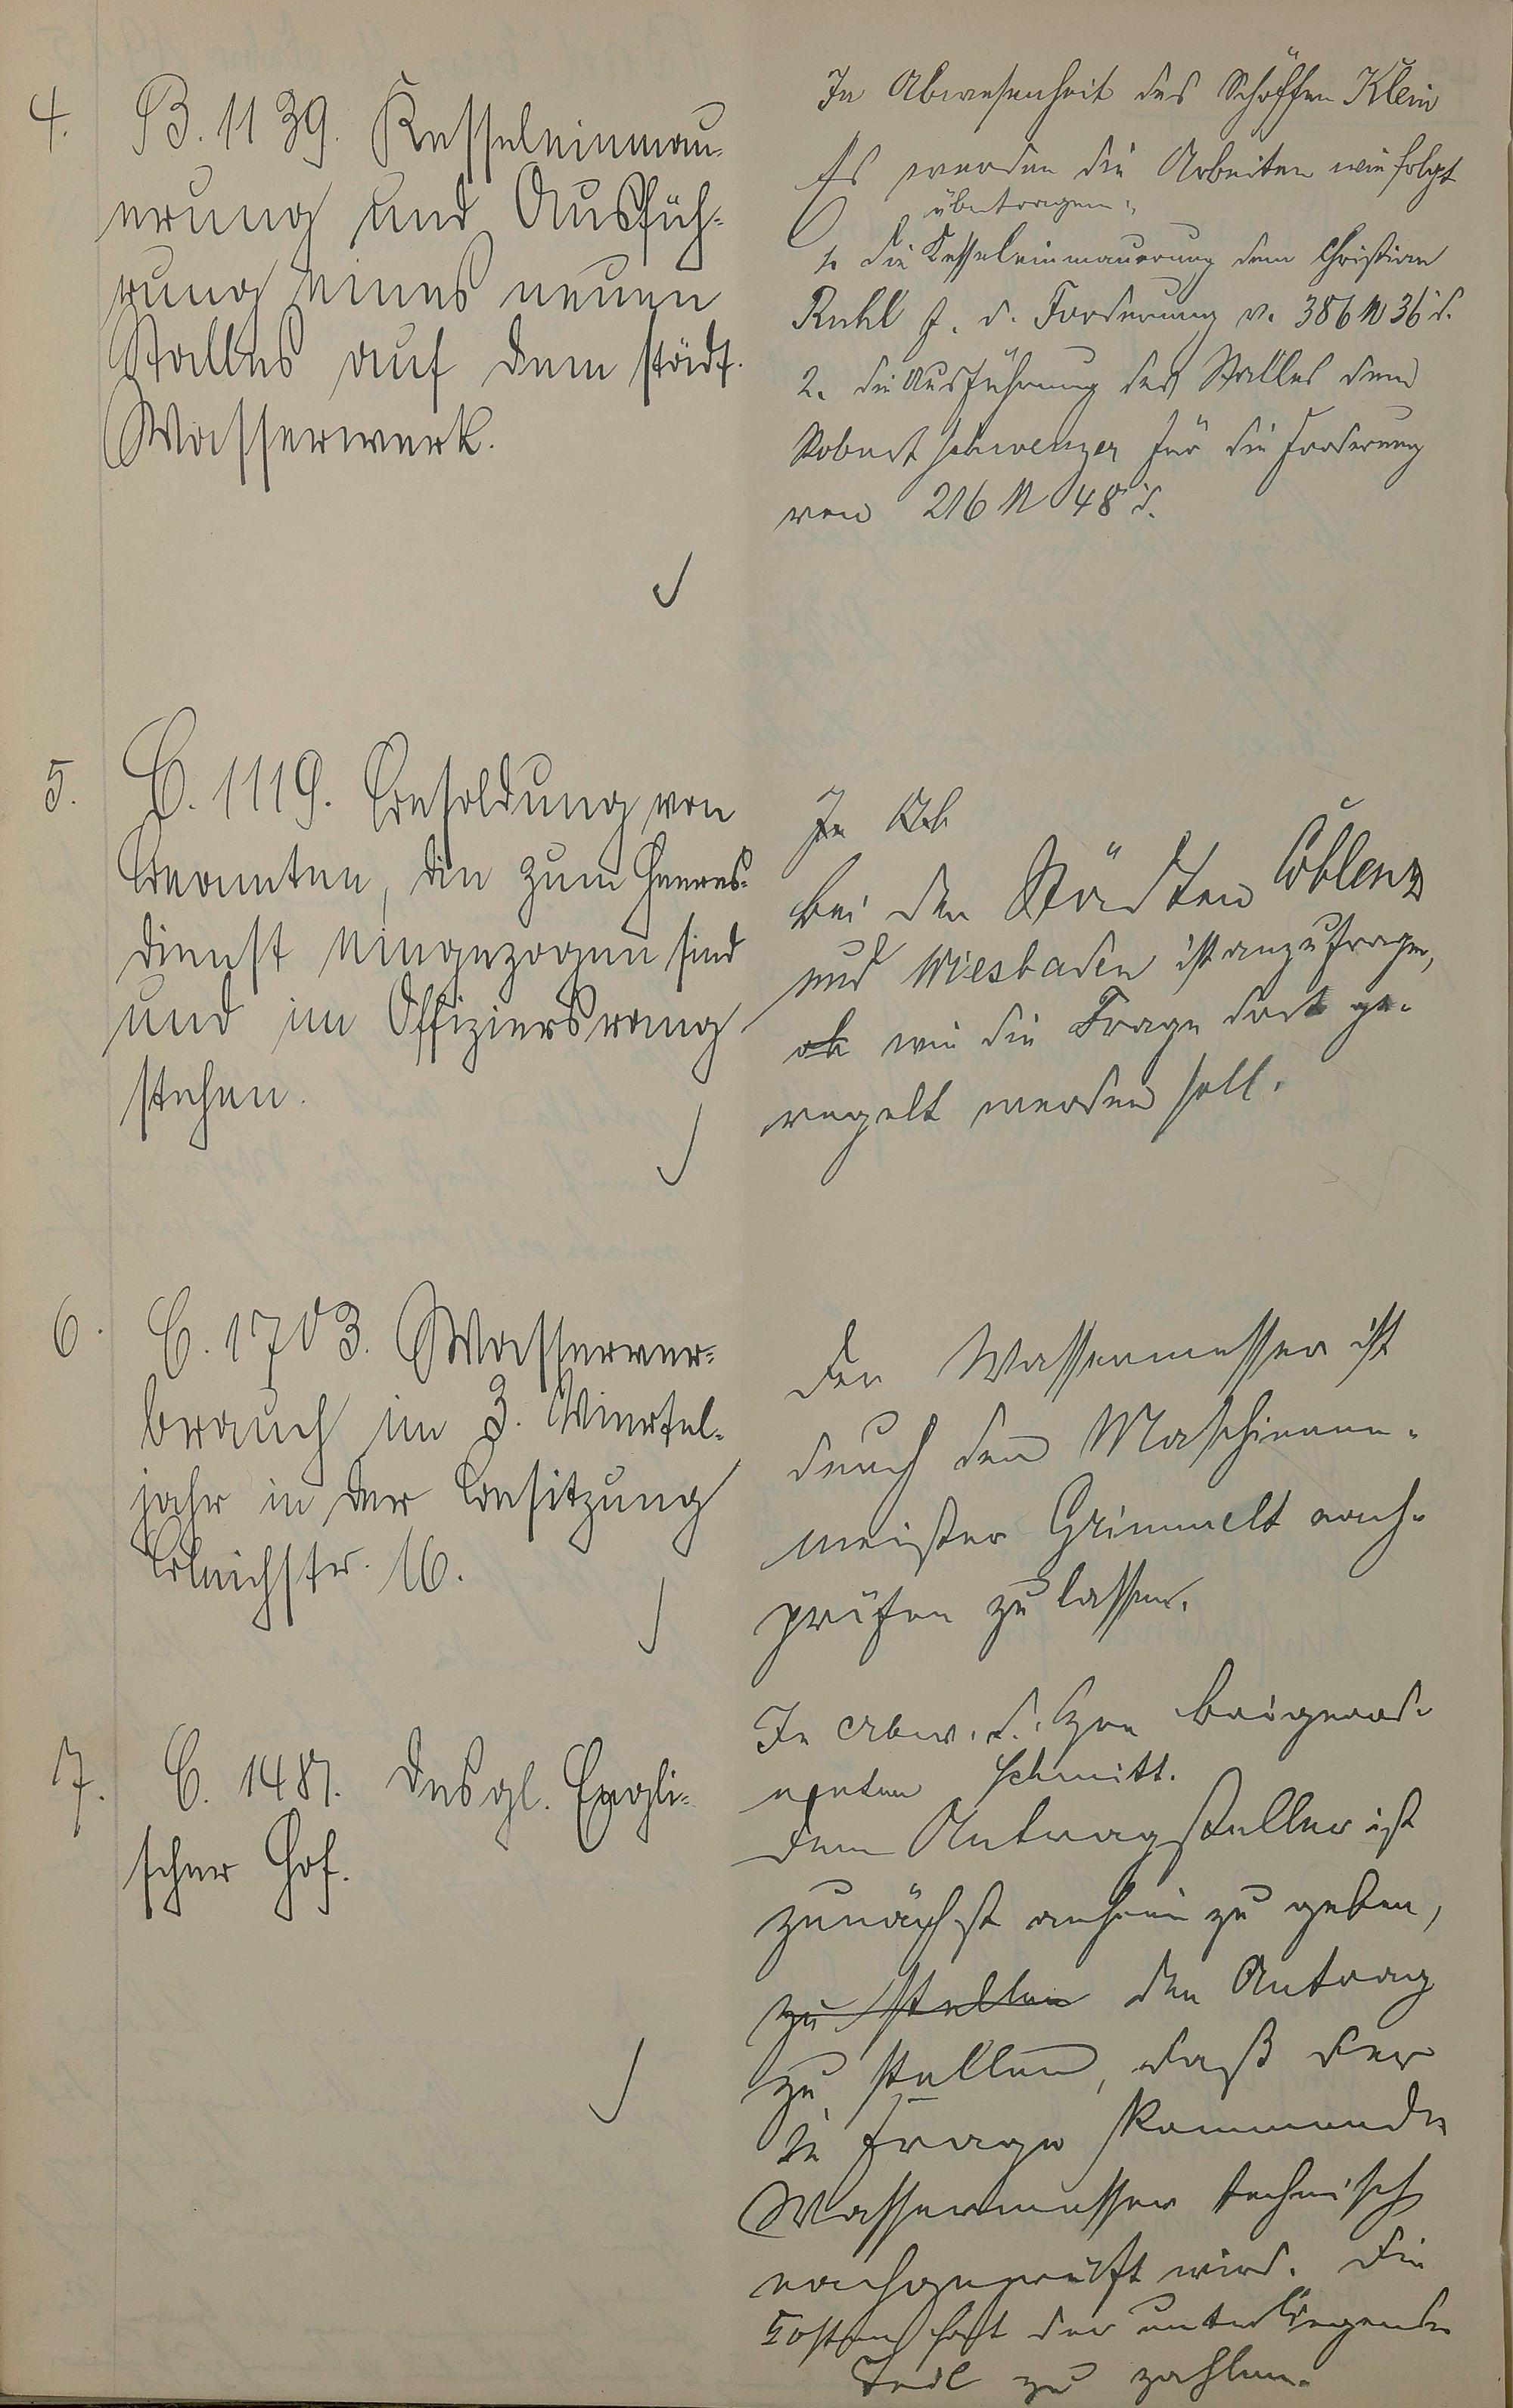 4.
B. 1139. Kesseleinmau-
erung und Ausfüh-
rung eines neuen
Stalles auf dem städt.
Wasserwerk.
In Abwesenheit des Schöffen Klein
Es werden die Arbeiten wie folgt
übertragen:
1. die Kesseleinmauerung dem Christian
Ruhl f. d. Forderung v. 386 M 36 d.
2. die Ausführung des Stalles dem
Robert Schwenzer für die Forderung
von 216 M 48 d.
5.
C. 1119. Besoldung von
Beamten, die zum Heeres-
dienst eingezogen sind
und im Offiziersrang
stehen.
In Ab
bei den Städten Coblenz
und Wiesbaden ist anzufragen,
ob wie die Frage dort ge-
regelt werden soll.
6.
C. 1703. Wasserver-
brauch im 3. Viertel-
jahr in der Besitzung
Bleichstr. 16.
Der Wassermesser ist
durch den Maschinen-
meister Grimmelt nach-
prüfen zu lassen.
7.
C. 1487. Desgl. Engli-
scher Hof.
In Abw. d. Hrn Beigeord-
neten Schmitt.
Dem Antragsteller ist
zunächst anheim zu geben,
zu stellen den Antrag
zu stellen, daß der
in Frage kommende
Wassermesser technisch
nachgeprüft wird. Die
Kosten hat der unterliegende
Teil zu zahlen.